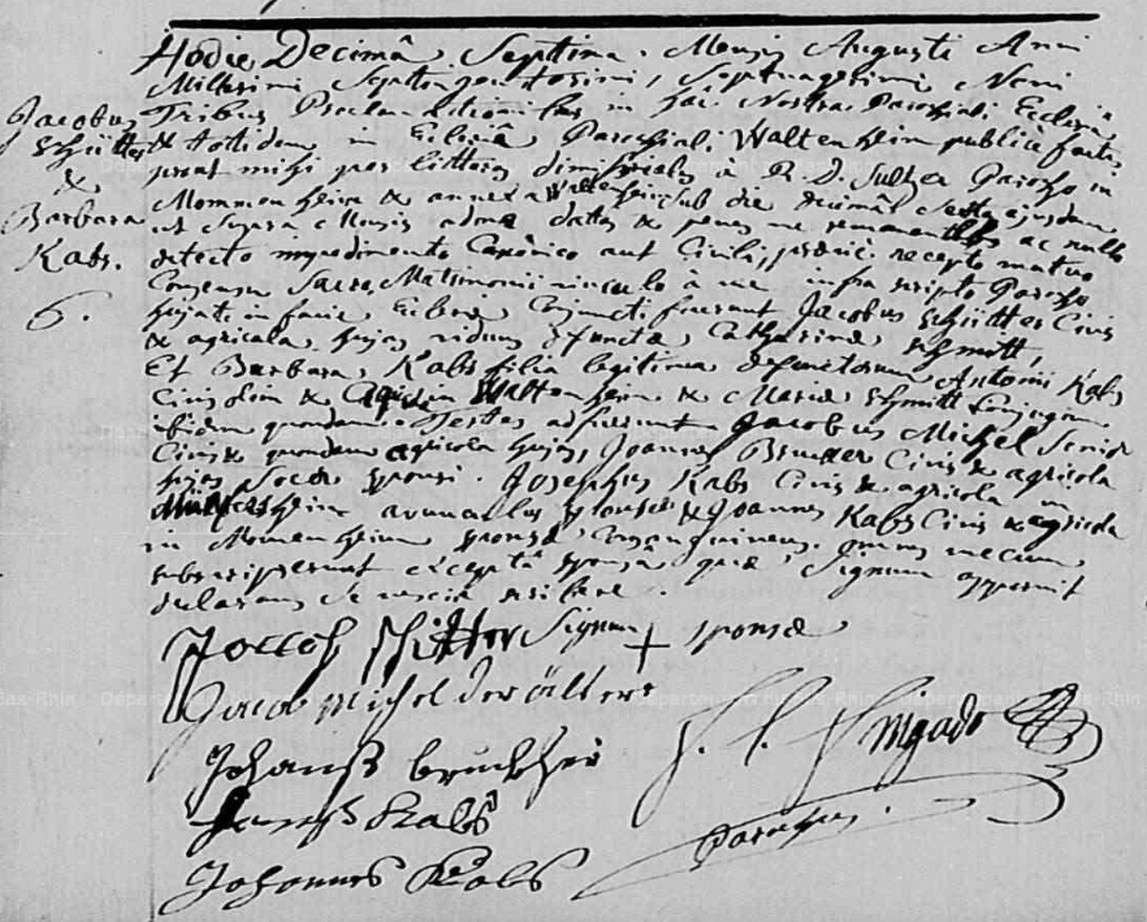 Hodie Decimâ Septima Mensis Augusti Anni
Millesimi Septingentesimi, Septuagesimi Noni
Jacobus Schütter & Barbara Kabs. 6.
Tribus Proclamationibus in hac Nostra Parochiali Ecclesia
& totidem in Ecclesiâ Parochiali Waltenheim publicè factis
prout mihi per litteras dimissoriales à R. D. Sultzer Parocho in
Mommenheim & annexa Waltenheim sub die decimâ sexta ejusdem
ut supra Mensis ad me datas & penes me remanentes ac nullo
detecto impedimento Canonico aut Civili, recepto mutuo
Consensu Sacro Matrimonii vinculo à me infra scripto Parocho
hujate in facie Ecclesiae Conjuncti fuerunt Jacobus Schütter Civis
& agricola hujas viduus defunctae Catharinae Schmitt,
Et Barbara Kabs filia legitima defunctorum Antonii Kabs
Civis olim & in Waltenheim & Mariae Schmitt Conjugum
ibidem quondam. Testes adfuerunt Jacobus Michel Senior
Civis & quondam agricola hujas, Joannes Civis & agricola
hujas Socer sponsi. Josephus Kabs Civis & agricola in
avunculus sponsae & Joannes Kabs Civis & agricola
in Momenheim sponsae Consanguineus. qui mecum
subscripserunt exceptâ sponsâ quae Signum apposuit
declarans se nescire scribere.
Jacob Schütter Signum + sponsae
Jacob Michel der älter
Johanß
Kabs
Johannes Kabs
Parochus.